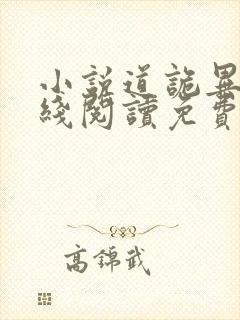 小説道詭異
綫閱讀免費
高錦武